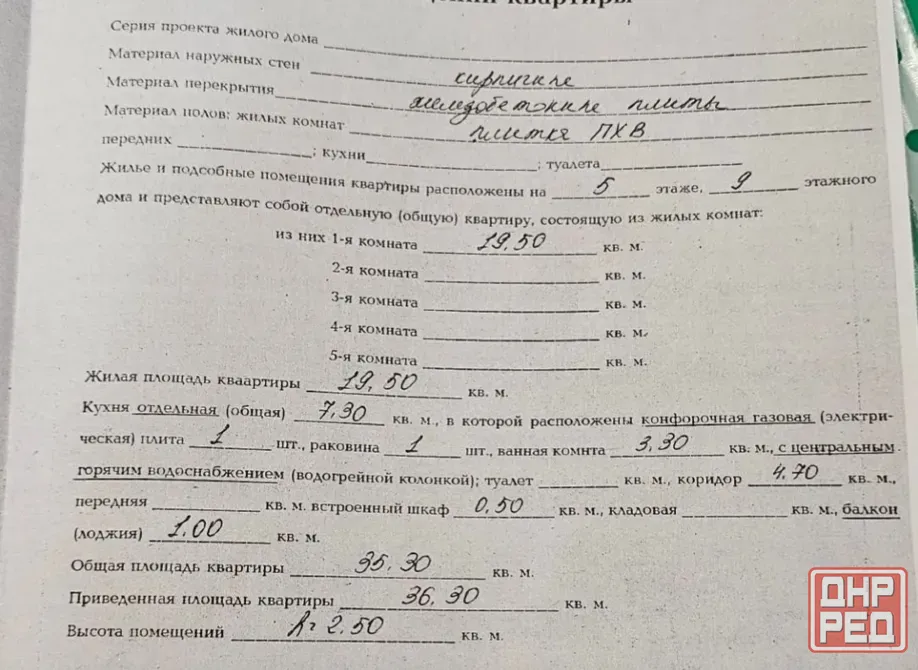 квартиры
Серия проекта жилого дома
Материал наружных стен кирпичные
Материал перекрытия железобетонные плиты
Материал полов: жилых комнат плитка ПХВ
передних ; кухни ; туалета
Жилье и подсобные помещения квартиры расположены на 5 этаже, 9 этажного
дома и представляют собой отдельную (общую) квартиру, состоящую из жилых комнат:
из них 1-я комната 19,50 кв. м.
2-я комната кв. м.
3-я комната кв. м.
4-я комната кв. м.
5-я комната кв. м.
Жилая площадь кваартиры 19,50 кв. м.
Кухня отдельная (общая) 7,30 кв. м., в которой расположены конфорочная газовая (электри-
ческая) плита 1 шт., раковина 1 шт., ванная комнта 3,30 кв. м., с центральным
горячим водоснабжением (водогрейной колонкой); туалет кв. м., коридор 4.70 кв. м.,
передняя кв. м. встроенный шкаф 0,50 кв. м., кладовая кв. м., балкон
(лоджия) 1,00 кв. м.
Общая площадь квартиры 35.30 кв. м.
Приведенная площадь квартиры 36.30 кв. м.
Высота помещений h= 2.50 кв. м.
ДНР
РЕД